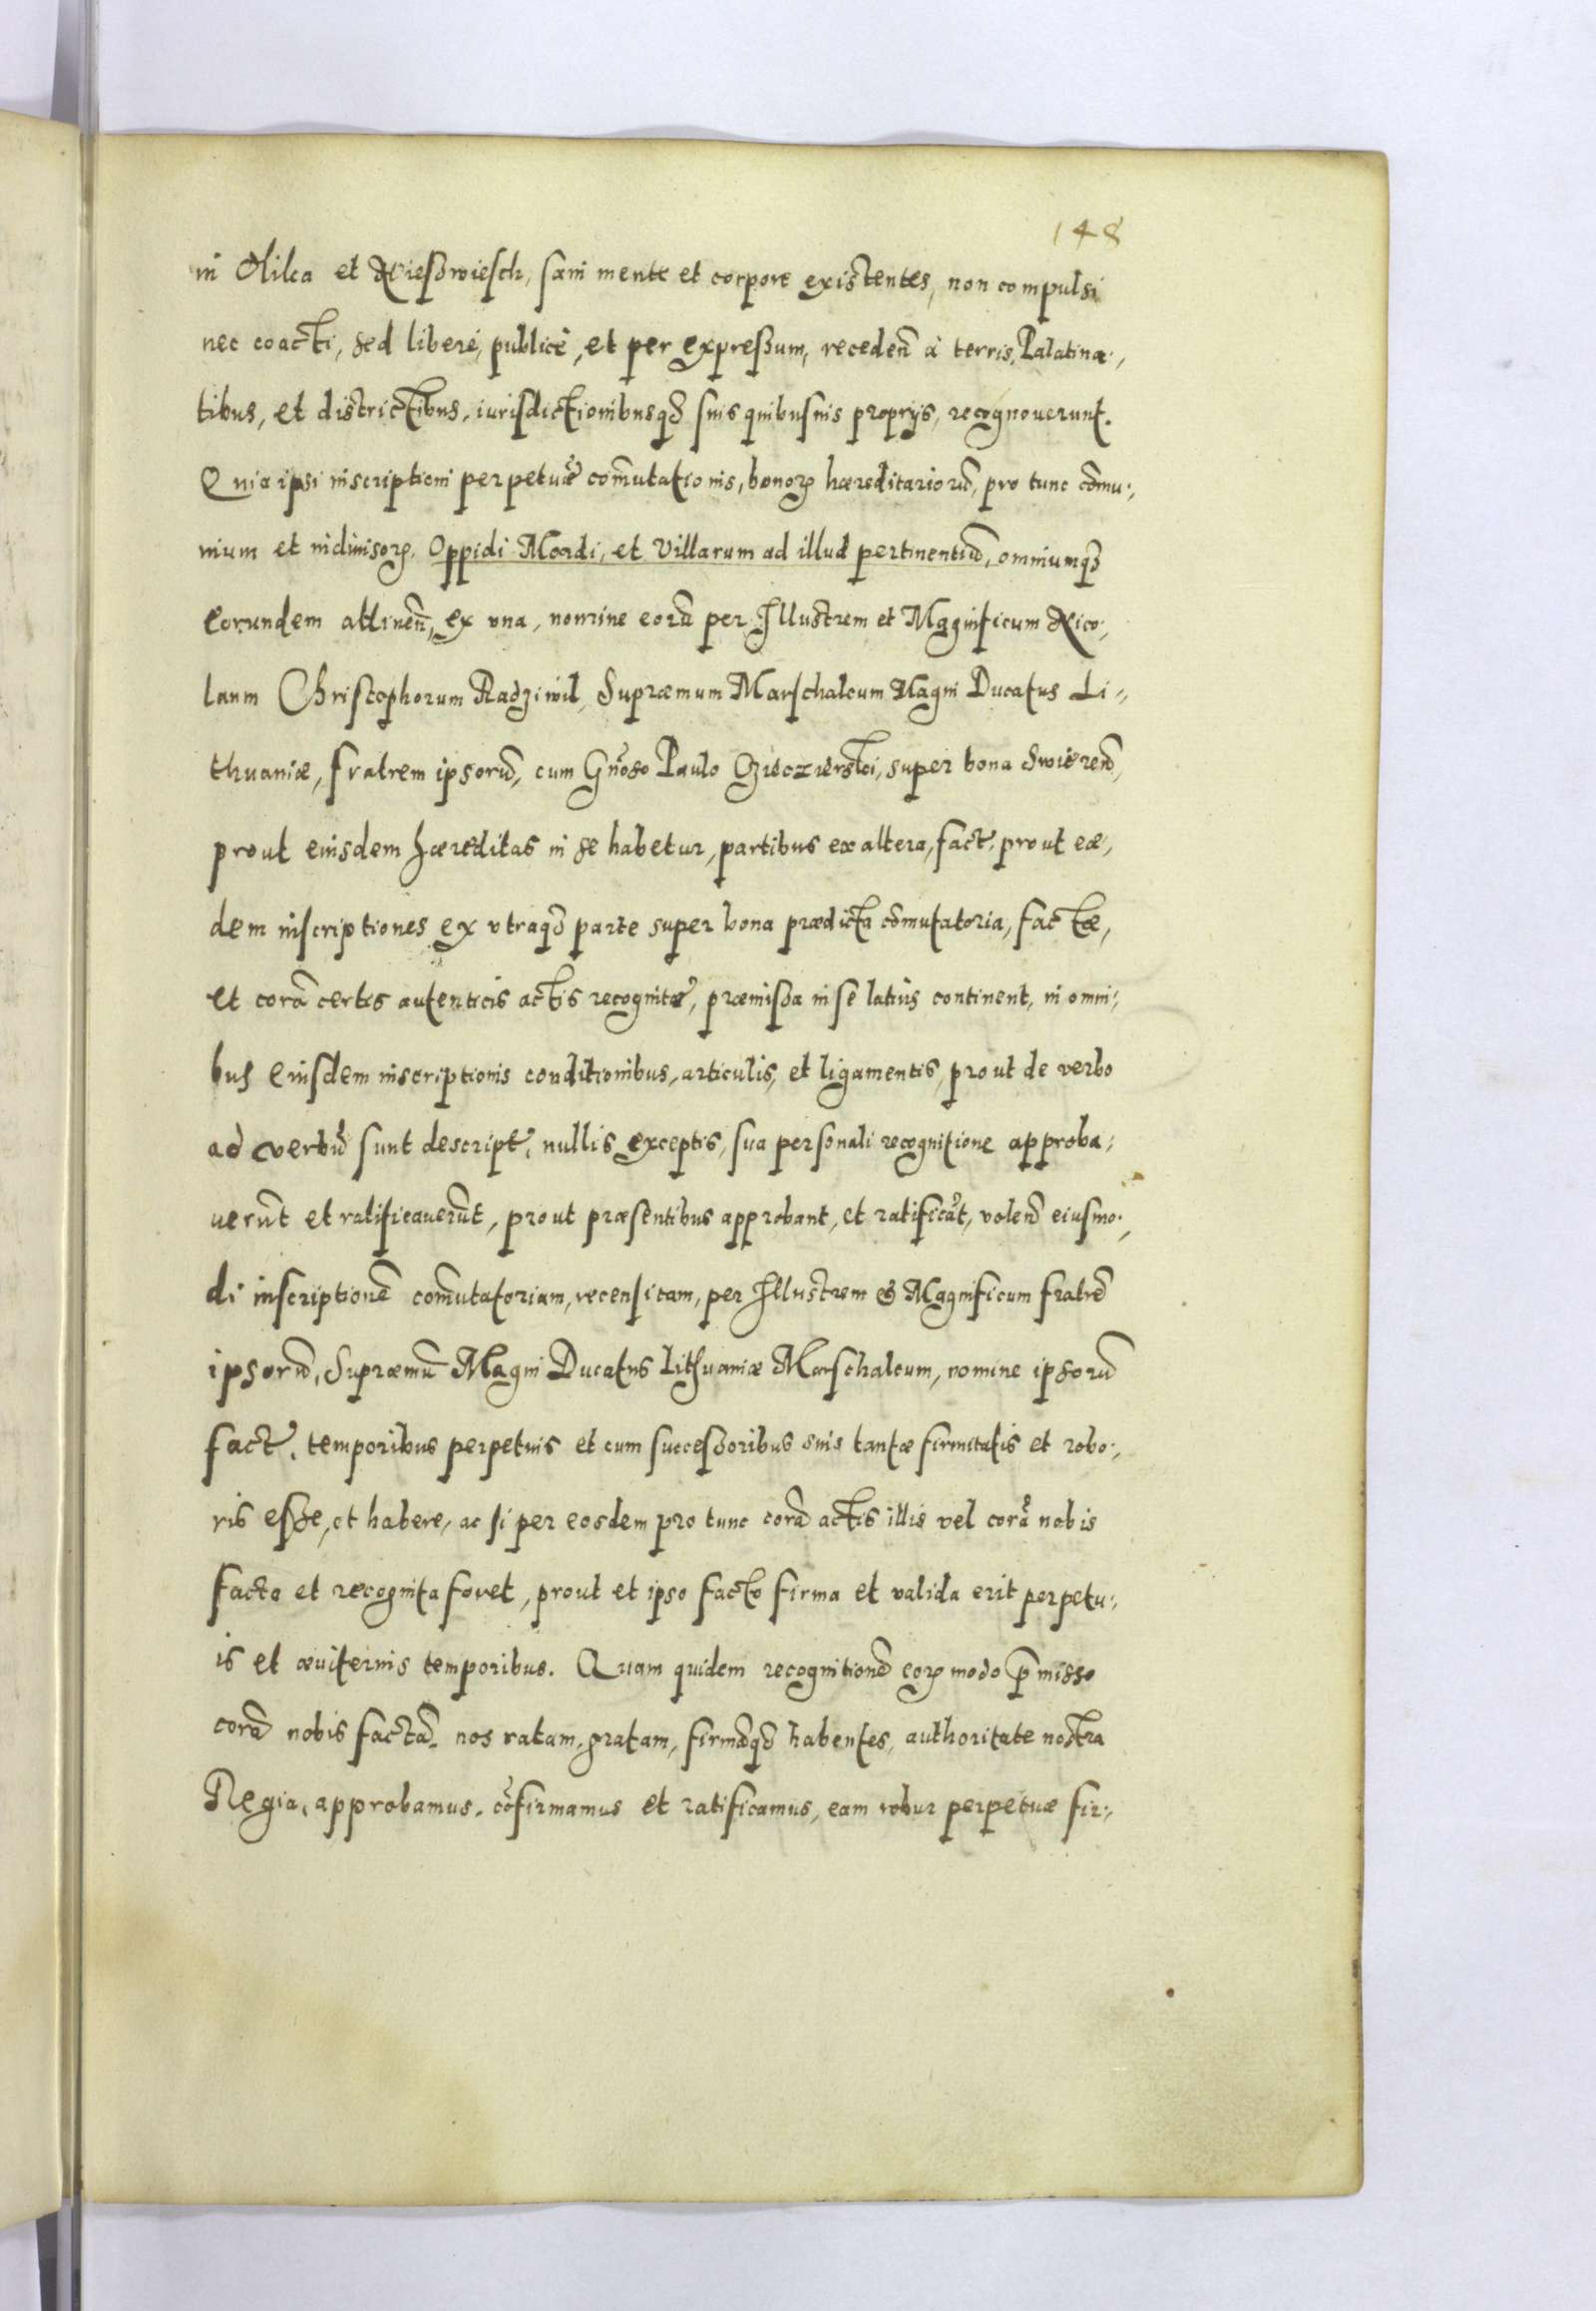 148
in Olika et Nießwiesch, sani mente et corpore existentes, non compulsi
nec coacti, sed liberè, publicè, et per expreßum, recedeñ à terris, Palatina,
tibus, et districtibus, iurisdictionibusq́ȝ suis quibusuis proprijs, recognouerunt.
Quia ipsi inscriptioni perpetuæ com̃utationis, bonoꝝ hæreditariorũ, pro tunc com̃u,
nium et indiuisoꝝ, Oppidi Mordi, et Villarum ad illud pertinentiũ, omniumq́ȝ
eorundem attineñ, ex vna, nomine eorũ per Illustrem et Magnificum Nico,
laum Christophorum Radziwil, Supræmum Marschalcum Magni Ducatus Li,,
thuaniæ, fratrem ipsorũ, cum Gñoso Paulo Czieczierski, super bona Swierẽd,
prout eiusdem hæreditas in se habetur, partibus ex altera, fact: prout eæ,
dem inscriptiones ex vtraq́ȝ parte super bona prædicta com̃utatoria, factæ,
et corã certis autenticis actis recognitæ, præmißa in se latiùs continent, in omni,
bus eiusdem inscriptionis conditionibus, articulis, et ligamentis, prout de verbo
ad verbũ sunt descript, nullis exceptis, sua personali recognitione approba,
uerũt et ratificauerũt, prout præsentibus approbant, et ratificãt, volẽd eiusmo,
di inscriptionẽ com̃utatoriam, recensitam, per Illustrem & Magnificum fratrẽ
ipsorũ, Supræmũ Magni Ducatus Lithuaniæ Marschalcum, nomine ipsorũ
fact, temporibus perpetuis et cum succeßoribus suis tantæ firmitatis et robo,
ris eße, et habere, ac si per eosdem pro tunc corã actis illis vel corã nobis
facta et recognita foret, prout et ipso facto firma et valida erit perpetu,
is et æuiternis temporibus. Quam quidem recognitionẽ eoꝝ modo p̃misso
corã nobis factã, nos ratam, gratam, firmãq́ȝ habentes, authoritate nostra
Regia, approbamus, cõfirmamus et ratificamus, eam robur perpetuæ fir,